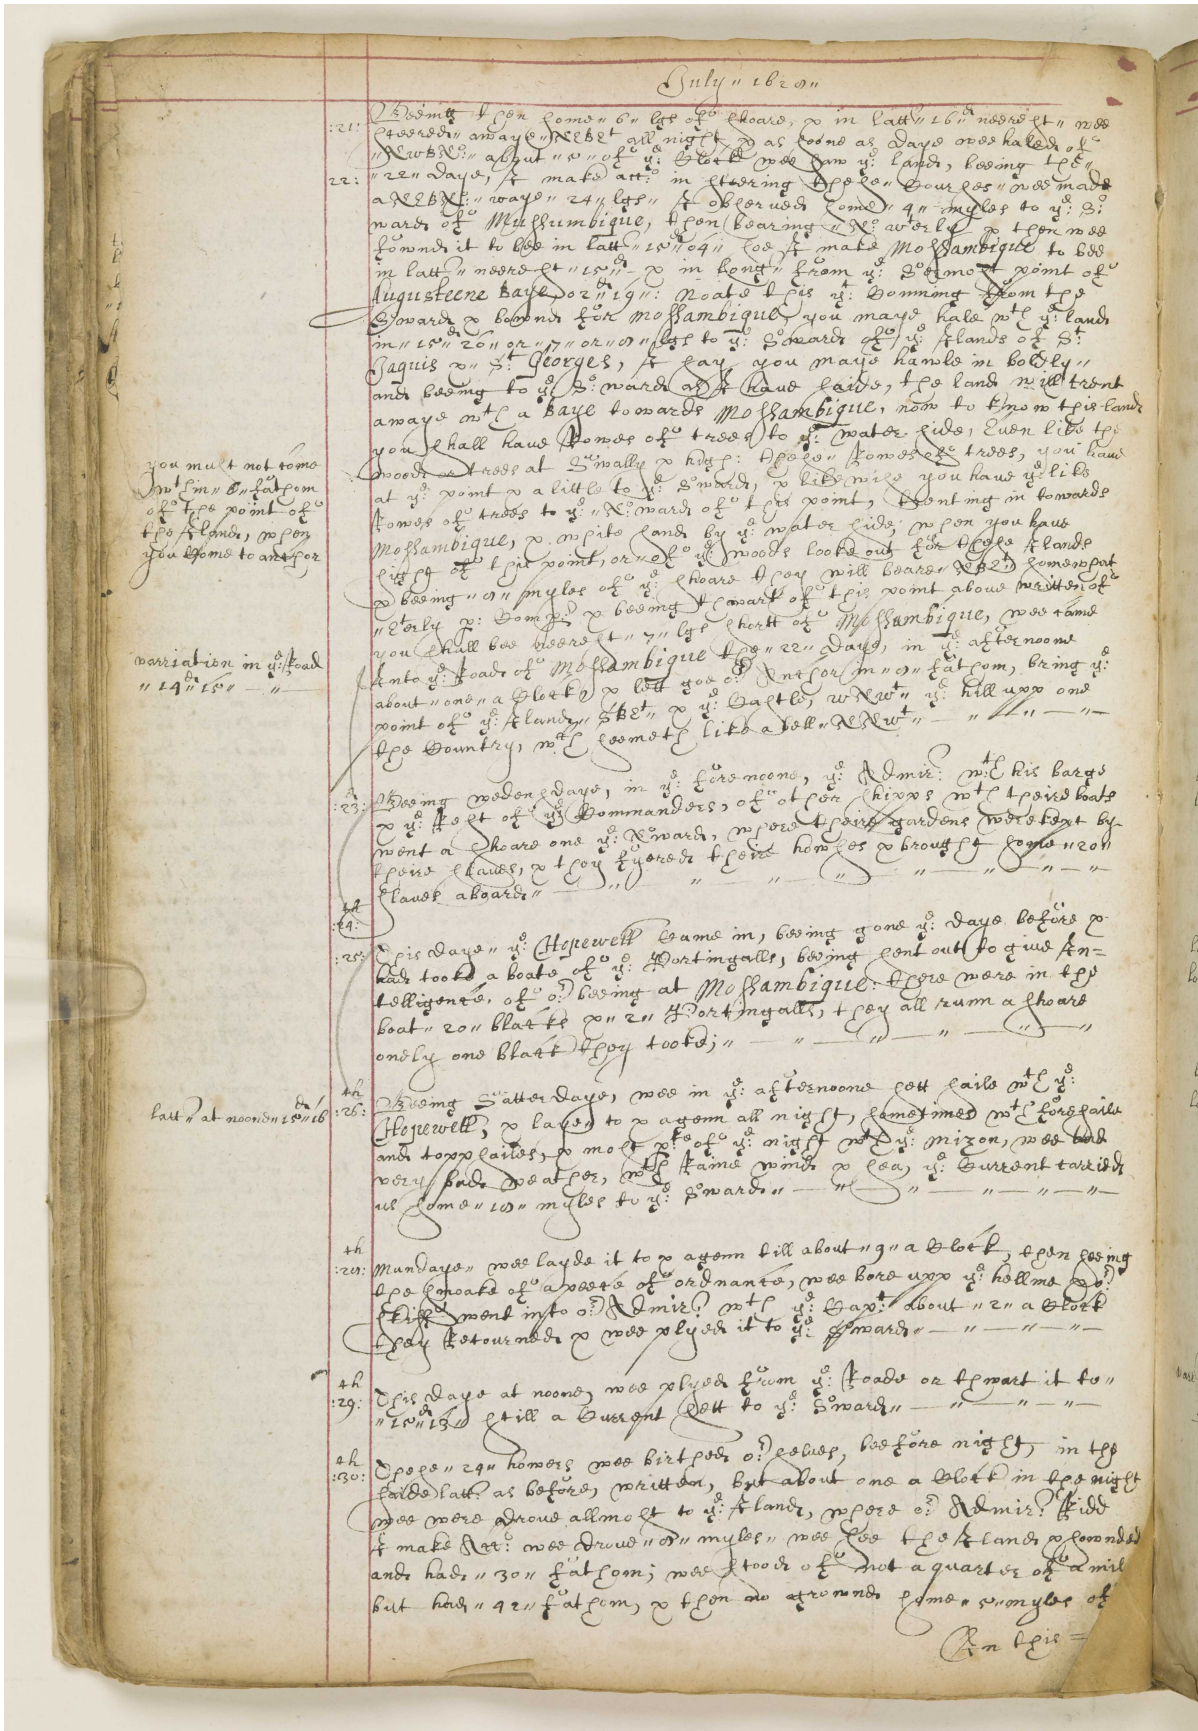 July " 1628 "
:21: Beeing then some " 6 " lgs of shoare, & in latt " 16 d neerest " wee
steered " awaye " NEBEt all night & as soone as daye wee haled of
" NWBNo: " about " 5 " of ye: Clock wee saw ye: land, beeing the "
22: " 22 " daye, I make acc:o in steering these " Courses " wee made
a NEBN: " waye " 24 " lgs " I observed some " 4 " myles to ye: So:
ward of Mussumbique, then bearing " No: w:erly & then wee
fownd it to bee in latt " 15 d 04 " soe I make Mossambique to bee
in latt " neerest " 15 d " – & in Long " from ye: So:ermost point of
Augusteene Baye, 02 d 19 ": Noate this yt: Comming from the
Sward & bownd for Mossambique, you maye hale wth ye: land
in " 15 d 20 " or " 7 " or " 8 " lgs to ye: Soward of ye: Ilands of St
Jaquis & " St: Georges, I say you maye hawle in boldly "
and beeing to ye: So: ward as I have saide, the land will trent
awaye wth a Baye towards Mossambique, now to know this land
you shall have Rowes of trees to ye: water side, Even like the
woods or trees at Swally & high: these " Rowes of trees, you have
you must not come
wthin " 6 " fathom
of the point of
the Iland, when
you Come to anchor
at ye: point & a little to ye: Soward, & likewise you have ye: like
Rowes of trees to ye: " Noward of this point, trenting in towards
Mossambique, & white sand by ye: water side; when you have
sight of this point, or of ye: woods looke out for these Ilands
& beeing " 8 " myles of ye: shoare they will beare " NBEt: somewhat
" Eterly p: Comps & beeing thwart of this point above written of
you shall bee neerest " 7 " lgs short of Mossambique, wee came
varriation in ye: Road
" 14 d 15 " — " —
Into ye: Roade of Mossambique the " 22 " daye, in ye: afternoone
about " one " a Clock, & lett goe or: Anchor in " 8 " fathom, bring ye:
point of ye: Iland " SBEt " & ye: Castle, WNWt " ye: hill upp one
the Country, wth seemeth like a bell " NNWt " — " — " — " —
:23: Beeing wedensdaye, in ye: forenoone, ye: Admir: wth his barge
& ye: Rest of ye: Commanders, of other shipps wth theire boats
went a shoare one ye: Noward, where theire gardens were kept by
theire slaves, & they fyered theire howses & brought some " 20 "
slaves aboard " — " — " — " — " — " — " —
th
:24:
:25: This daye " ye: Hopewell Came in, beeing gone ye: daye before &
had tooke a boate of ye: Portingalls, beeing sent out to give In=
telligence, of or: beeing at Mossambique: there were in the
boat " 20 " blacks & " 2 " Portingalls, they all runn a shoare
onely one black they tooke; " — " — " — " — " — "
th
:26: Beeing Satterdaye, wee in ye: afternoone sett saile wth ye:
latt " at noone " 15 d 16
Hopewell, & laye " to & agenn all night, sometimes wth foresaile
and toppsailes, & most pte of ye: night wth ye: mizon, wee had
very bad weather, wth Raine wind & sea, ye: Current carried
us some " 18 " myles to ye: Soward " — " — " — " — " — " —
th
:28: Mundaye " wee layde it to & agenn till about " 9 " a Clock, then seeing
the smoake of a peece of ordnance, wee bore upp ye: hellme & or:
skiff went into or: Admir: wth ye: Capt: about " 2 " a Clock
they Retourned & wee plyed it to ye: Sward " — " — " — " —
th
:29: This daye at noone, wee plyed from ye: Roade or thwart it to "
" 15 d 13 " still a Current sett to ye: Soward " — " — " — " —
th
:30: These " 24 " howers wee birthed or: selves, beefore night, in the
saide latt: as before, written, but about one a Clock in the night
wee were drove allmost to ye: Iland, where or: Admir: Ridd
I make Acc:o wee drove " 8 " myles " wee see the Iland & sownded
and had " 30 " fathom; wee stood of not a quarter of a mil
but had " 42 " fathom, & then no grownd some " 5 " myles of
In this =